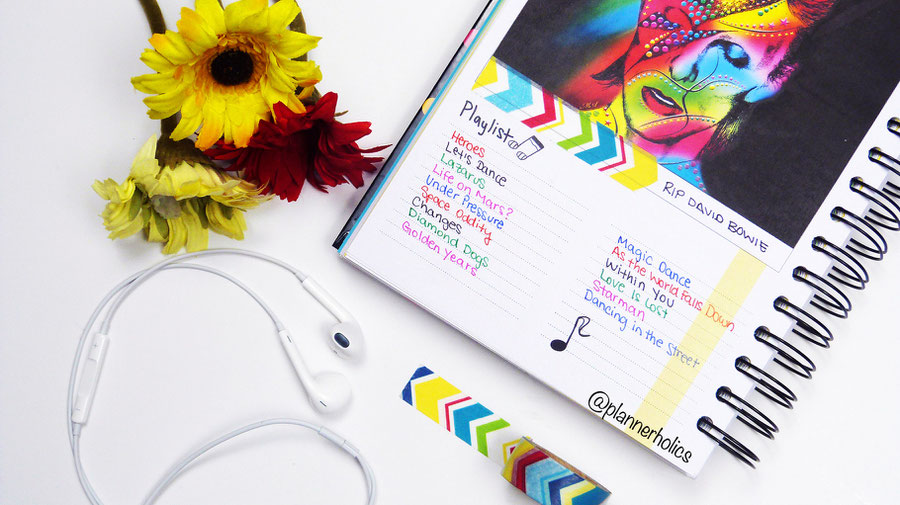 RIP DAVID BOWIE
Playlist
Heroes
Let's Dance
Lazarus
Life on Mars?
Under Pressure
Space Oddity
Changes
Diamond Dogs
Golden Years
Magic Dance
As the World Falls Down
Within You
Love is Lost
Starman
Dancing in the Street
@plannerholics